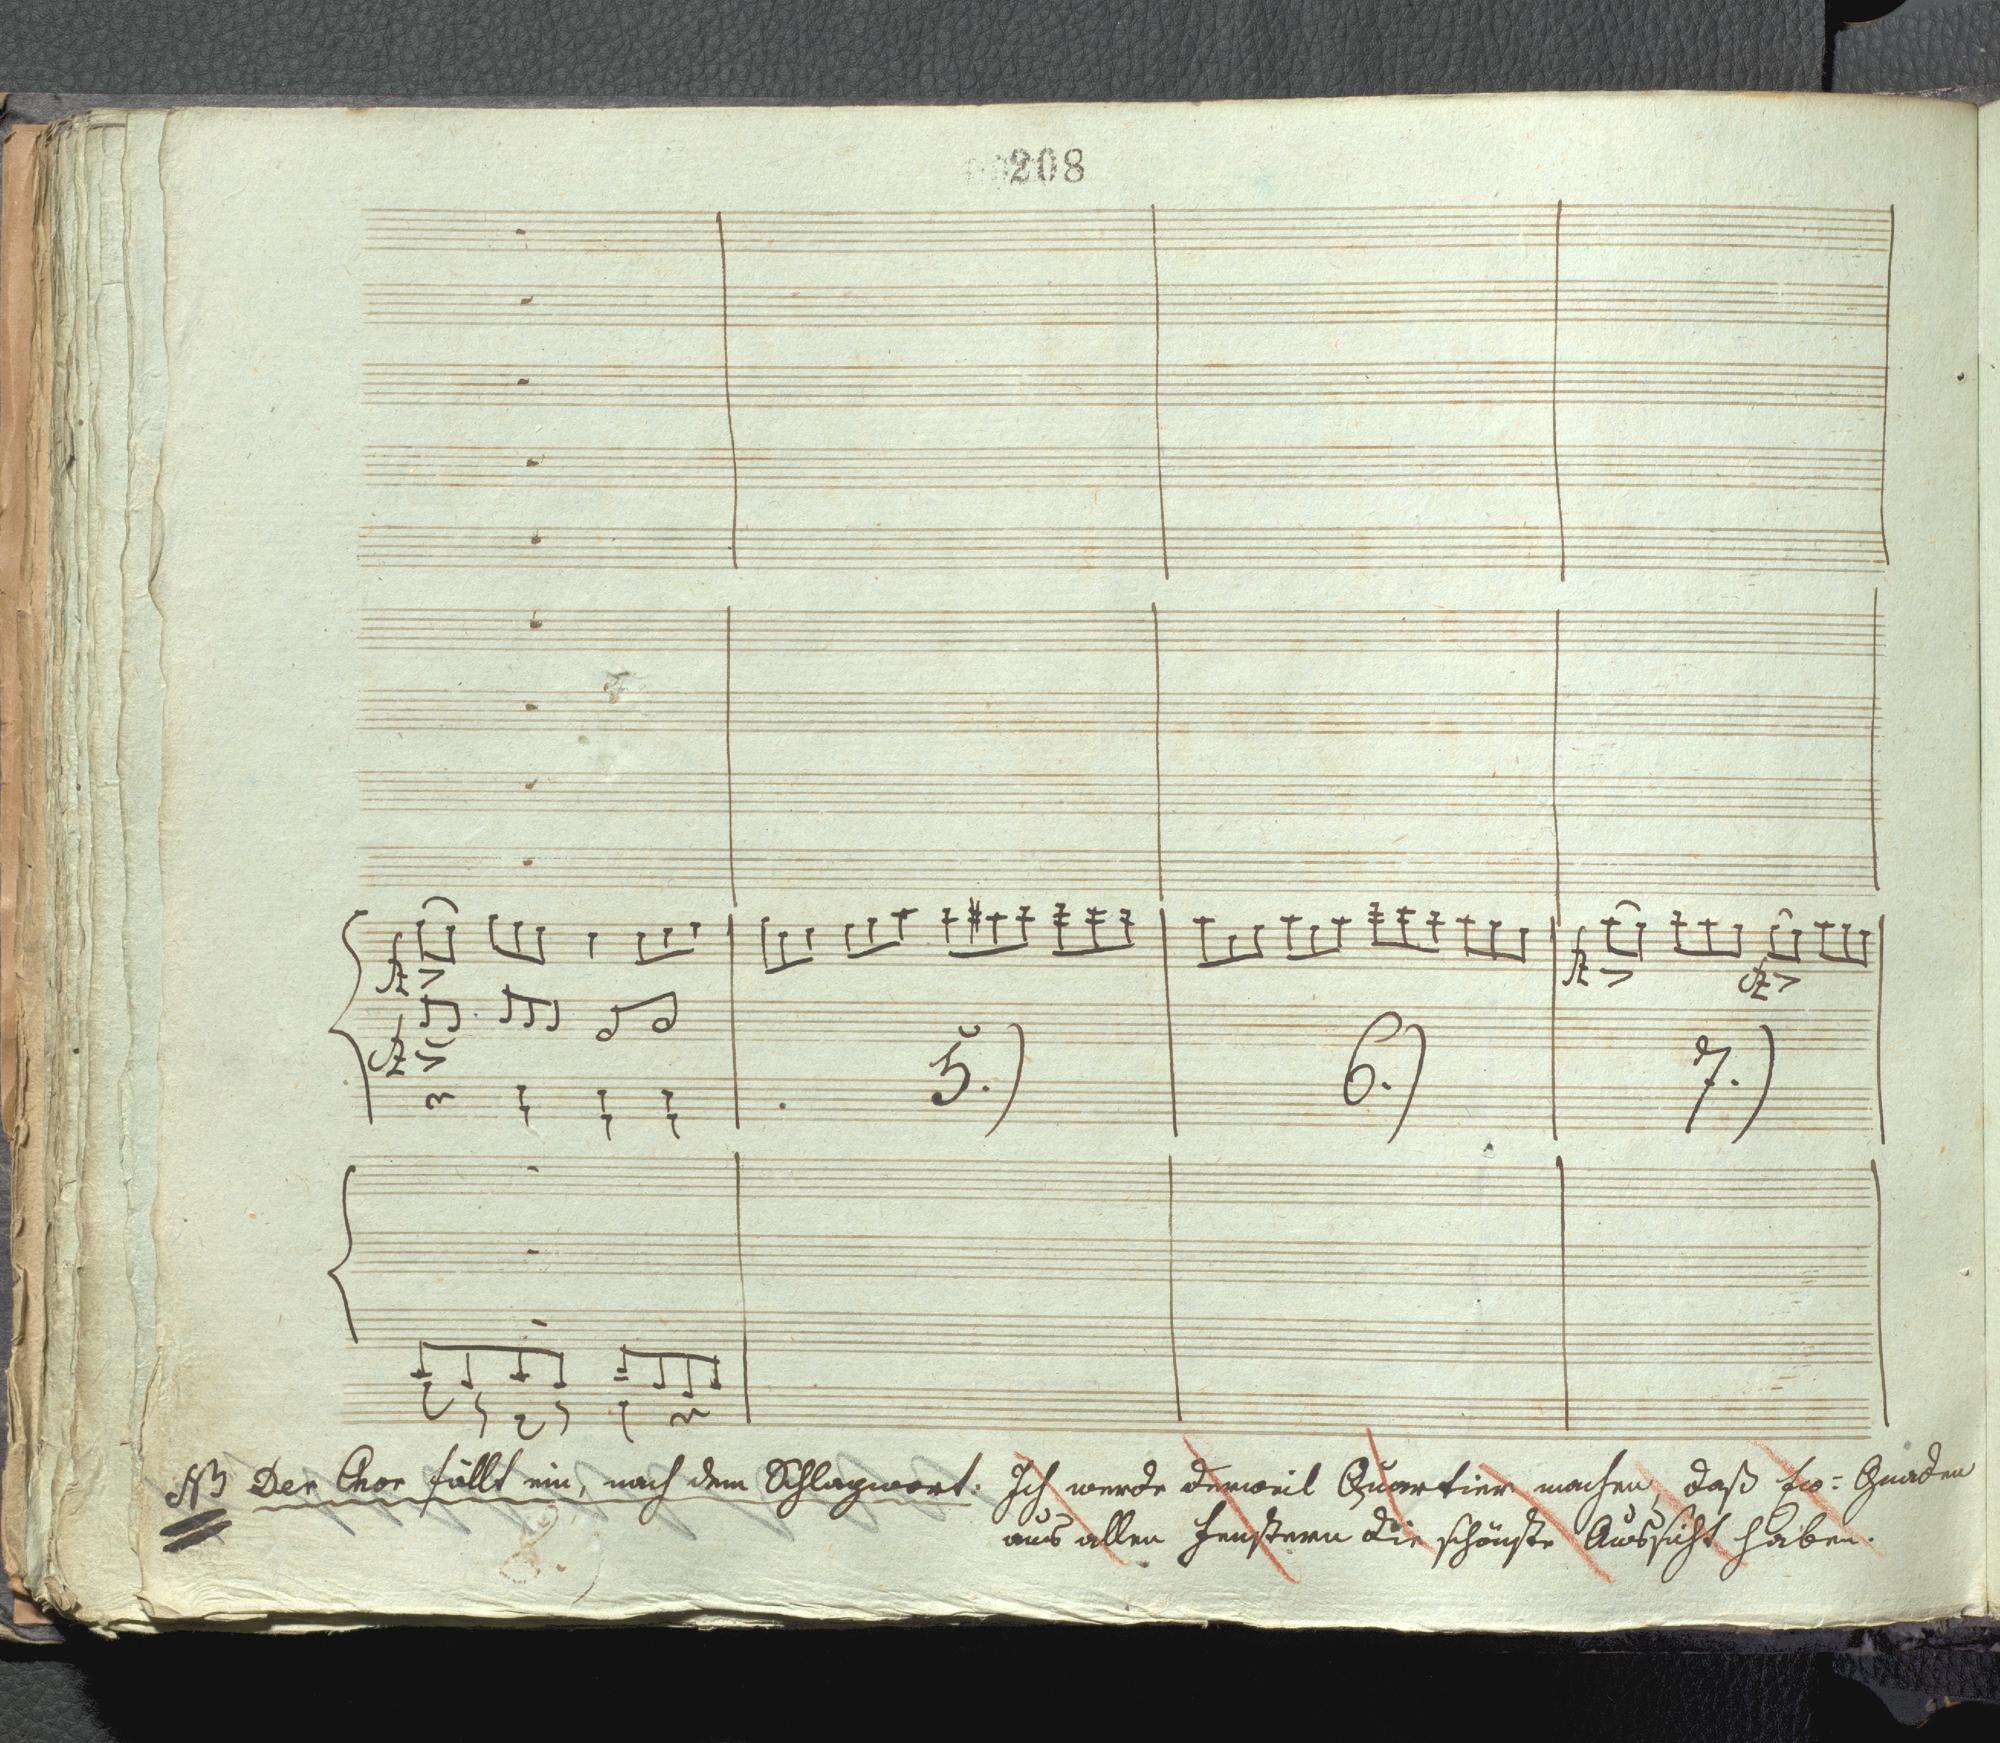 208
fz
fz
fz
fz
5.) 6.) 7.)
NB Der Chor fällt ein, nach dem Schlagwort. Ich werde derweil Quartier machen, daß Euo: Gnaden
aus allen Fenstern die schönste Aussicht haben.